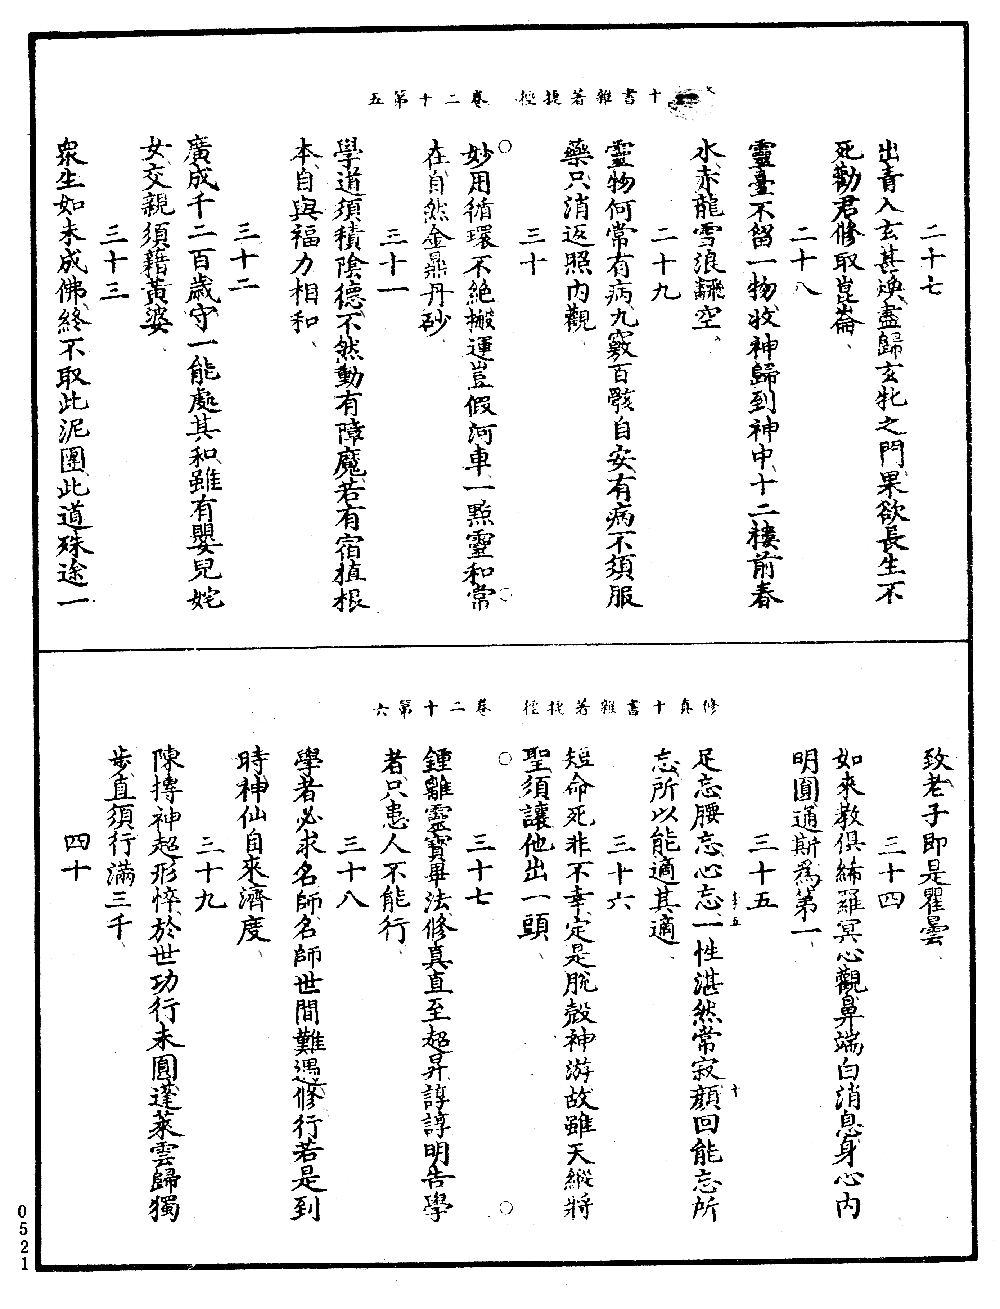 十書雜著捷徑 卷二十第五
二十七
出青入玄甚煥盡歸玄牝之門果欲長生不
死勸君修取崑崙
二十八
靈臺不留一物收神歸到神中十二樓前春
水赤龍雪浪飜空
二十九
靈物何常有病九竅百骸自安有病不須服
藥只消返照內觀
三十
妙用循環不絕搬運豈假河車一點靈和常
在自然金鼎丹砂
三十一
學道須積陰德不然動有障魔若有宿植根
本自與福力相和
三十二
廣成千二百歲守一能處其和雖有嬰兒姹
女交親須藉黃婆
三十三
眾生如未成佛終不取此泥團此道殊途一
修真十書雜著捷徑 卷二十第六
致老子即是瞿曇
三十四
如來教俱絺羅冥心觀鼻端白消息身心內
明圓通斯為第一
三十五
足忘腰忘心忘一性湛然常寂顏回能忘所
忘所以能適其適
三十六
短命死非不幸定是脫殼神游故雖天縱將
聖須讓他出一頭
三十七
鍾離靈寶畢法修真直至超昇諄諄明告學
者只患人不能行
三十八
學者必求名師名師世間難遇修行若是到
時神仙自來濟度
三十九
陳摶神超形悴於世功行未圓蓬萊雲歸獨
步直須行滿三千
四十
0521